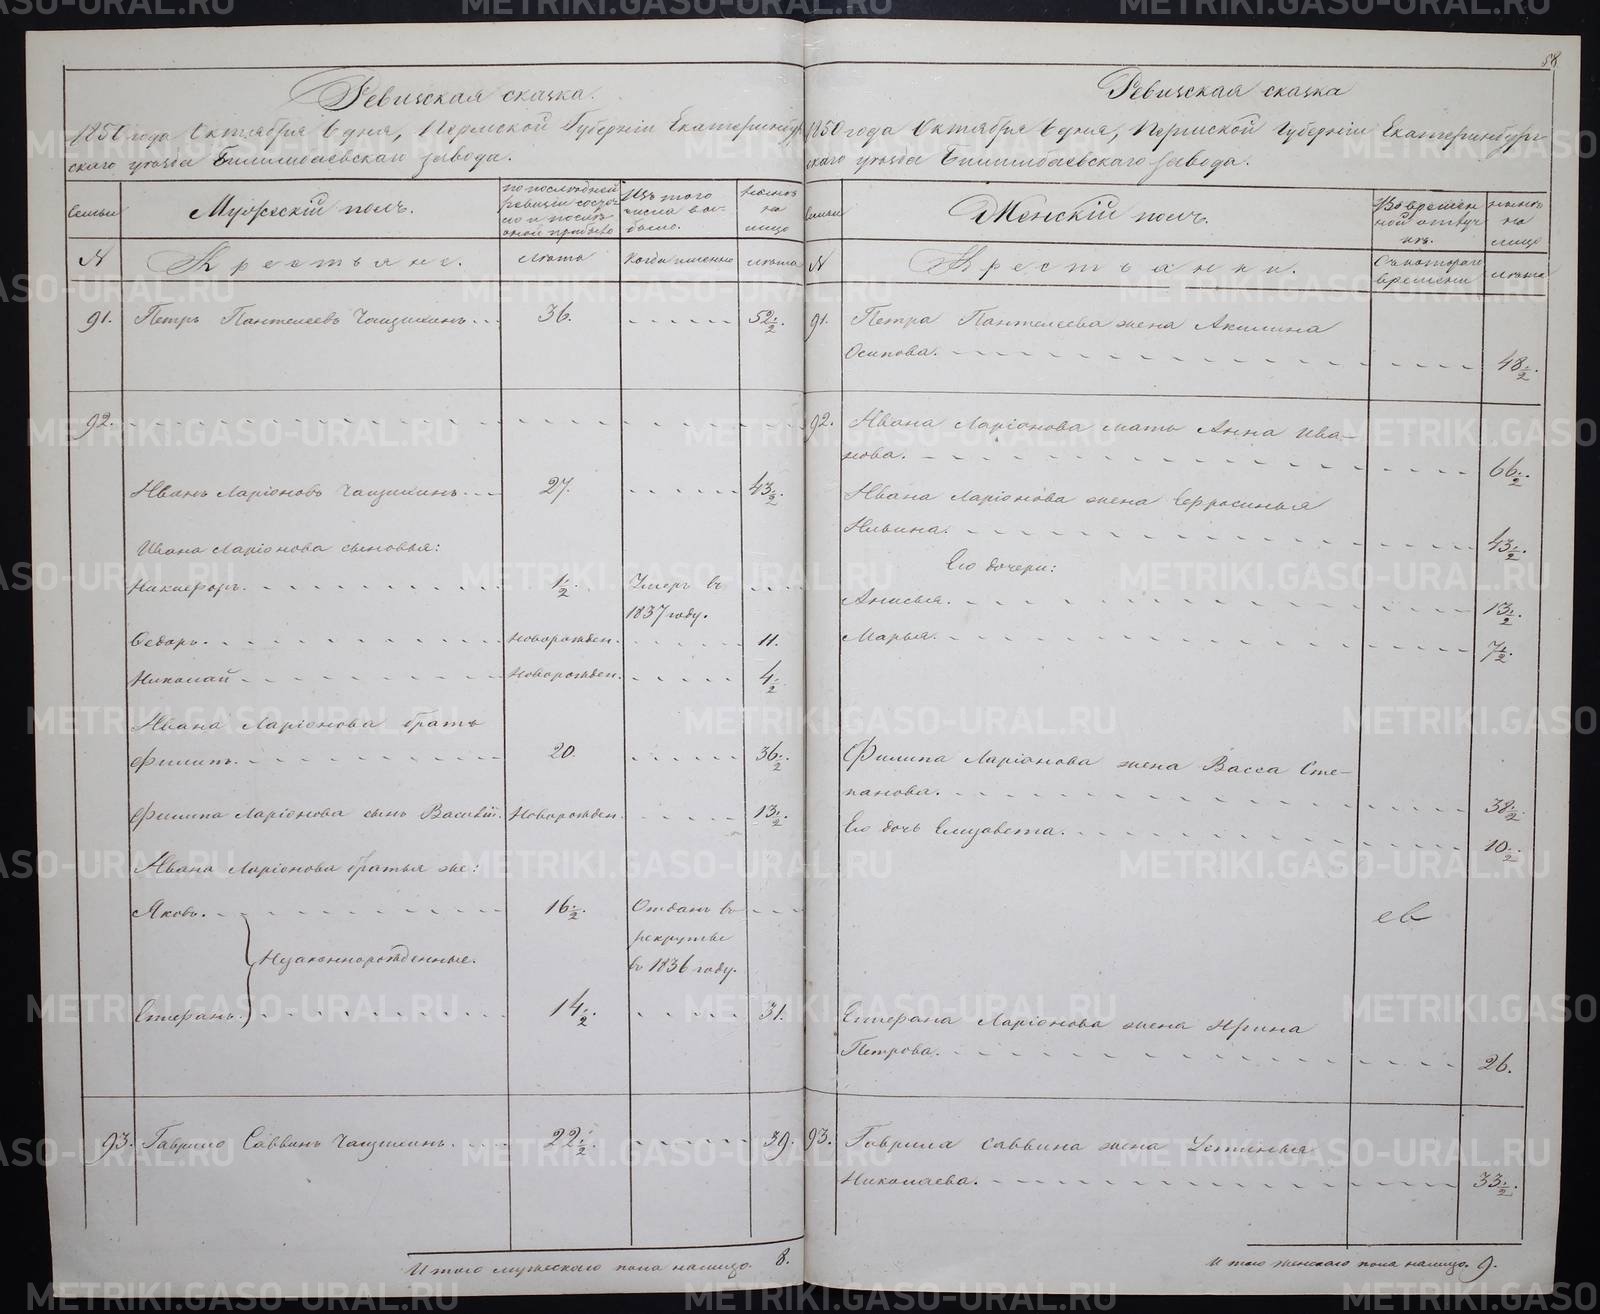 58
Ревизская сказка.
1850 года Октября 6 дня, Пермской Губерніи Екатеринбур
скаго уѣзда Билимбаевскаго завода.
Семьи
Мужескій полъ.
по послѣдней
ревизіи состоя
ло и послѣ
оной прибыло
Изъ того
числа вы-
было.
нынѣ
на
лицо
№
Крестьяне.
лѣта
Когда именно
лѣта
91. Петръ Пантелеевъ Чащихинъ... 36. 52½.
92.
Иванъ Ларіоновъ Чащихинъ... 27. 43½.
Ивана Ларіонова сыновья:
Никифоръ. ½. Умеръ въ
1837 году.
Ѳедоръ. Новорожден. 11.
Николай Новорожден. 4½
Ивана Ларіонова братъ
Филипъ. 20. 36½.
Филипа Ларіонова сынъ Василій. Новорожден. 13½.
Ивана Ларіонова братья же:
Яковъ. 16½. Отданъ въ
рекруты
Незаконнорожденные. въ 1836 году.
Стефанъ. 14½. 31.
93. Гаврило Саввинъ Чащихинъ. 22½. 39.
Итого мужескаго пола налицо. 8.
Ревизская сказка
1850 года Октября 6 дня, Пермской Губерніи Екатеринбург
скаго уѣзда Билимбаевскаго завода.
Семьи
Женскій полъ.
Во времен
ной отлуч
кѣ.
нынѣ
на
лицо
№
Крестьянки.
Съ котораго
времени
лѣта
91. Петра Пантелеева жена Акилина
Осипова. 48½.
92. Ивана Ларіонова мать Анна Ива-
нова. 66½.
Ивана Ларіонова жена Ефросинья
Ильина. 43½.
Его дочери:
Анисья. 13½.
Марья. 7½.
Филипа Ларіонова жена Васса Сте-
панова. 38½
Его дочь Елизавета. 10½.
Стефана Ларіонова жена Ирина
Петрова. 26.
93. Гаврила Саввина жена Устинья
Николаева. 33½.
Итого женскаго пола налицо. 9.
METRIKI.GASO-URAL.RU